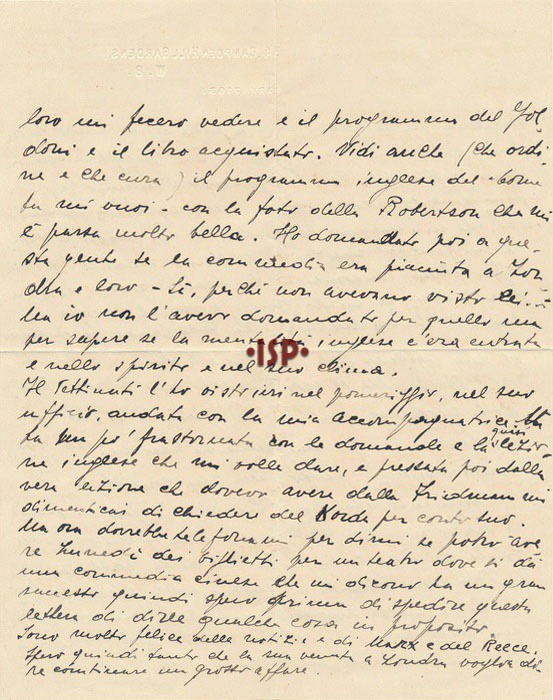 CAMPDEN HILL GARDENS
W. 8.
loro mi fecero vedere e il programma del Gol
doni e il libro acquistato. Vidi anche (che ordi
ne e che cura) il programma inglese del "Come
tu mi vuoi" con la foto della Robertson che mi
è parsa molto bella. Ho domandato poi a que-
sta gente se la commedia era piaciuta a Lon
dra e loro - Sì, perchè non avevano visto lei...
Ma io non l'avevo domandato per quello ma
per sapere se la mentalità inglese c'era entrata
e nello spirito e nel suo clima.
·ISP·
Il Pettinati l'ho visto ieri nel pomeriggio, nel suo
ufficio, andata con la mia accompagnatrice.
ta un po' frastornata con le domande e la quasi lezio-
ne inglese che mi volle dare, e pressata poi dalla
vera lezione che dovevo avere dalla Friedmann mi
dimenticai di chiedere del Korda per conto suo.
Ma ora dovrebbe telefonarmi per dirmi se potrò ave
re Lunedì dei biglietti per un teatro dove si dà
una comedia cinese che mi dicono ha un gran
successo quindi spero prima di spedire questa
lettera di dirle qualche cosa in proposito.
Sono molto felice delle notizie e di Marx e del Reece.
Spero quindi tanto che la sua venuta a Londra voglia di-
re combinare un grosso affare.